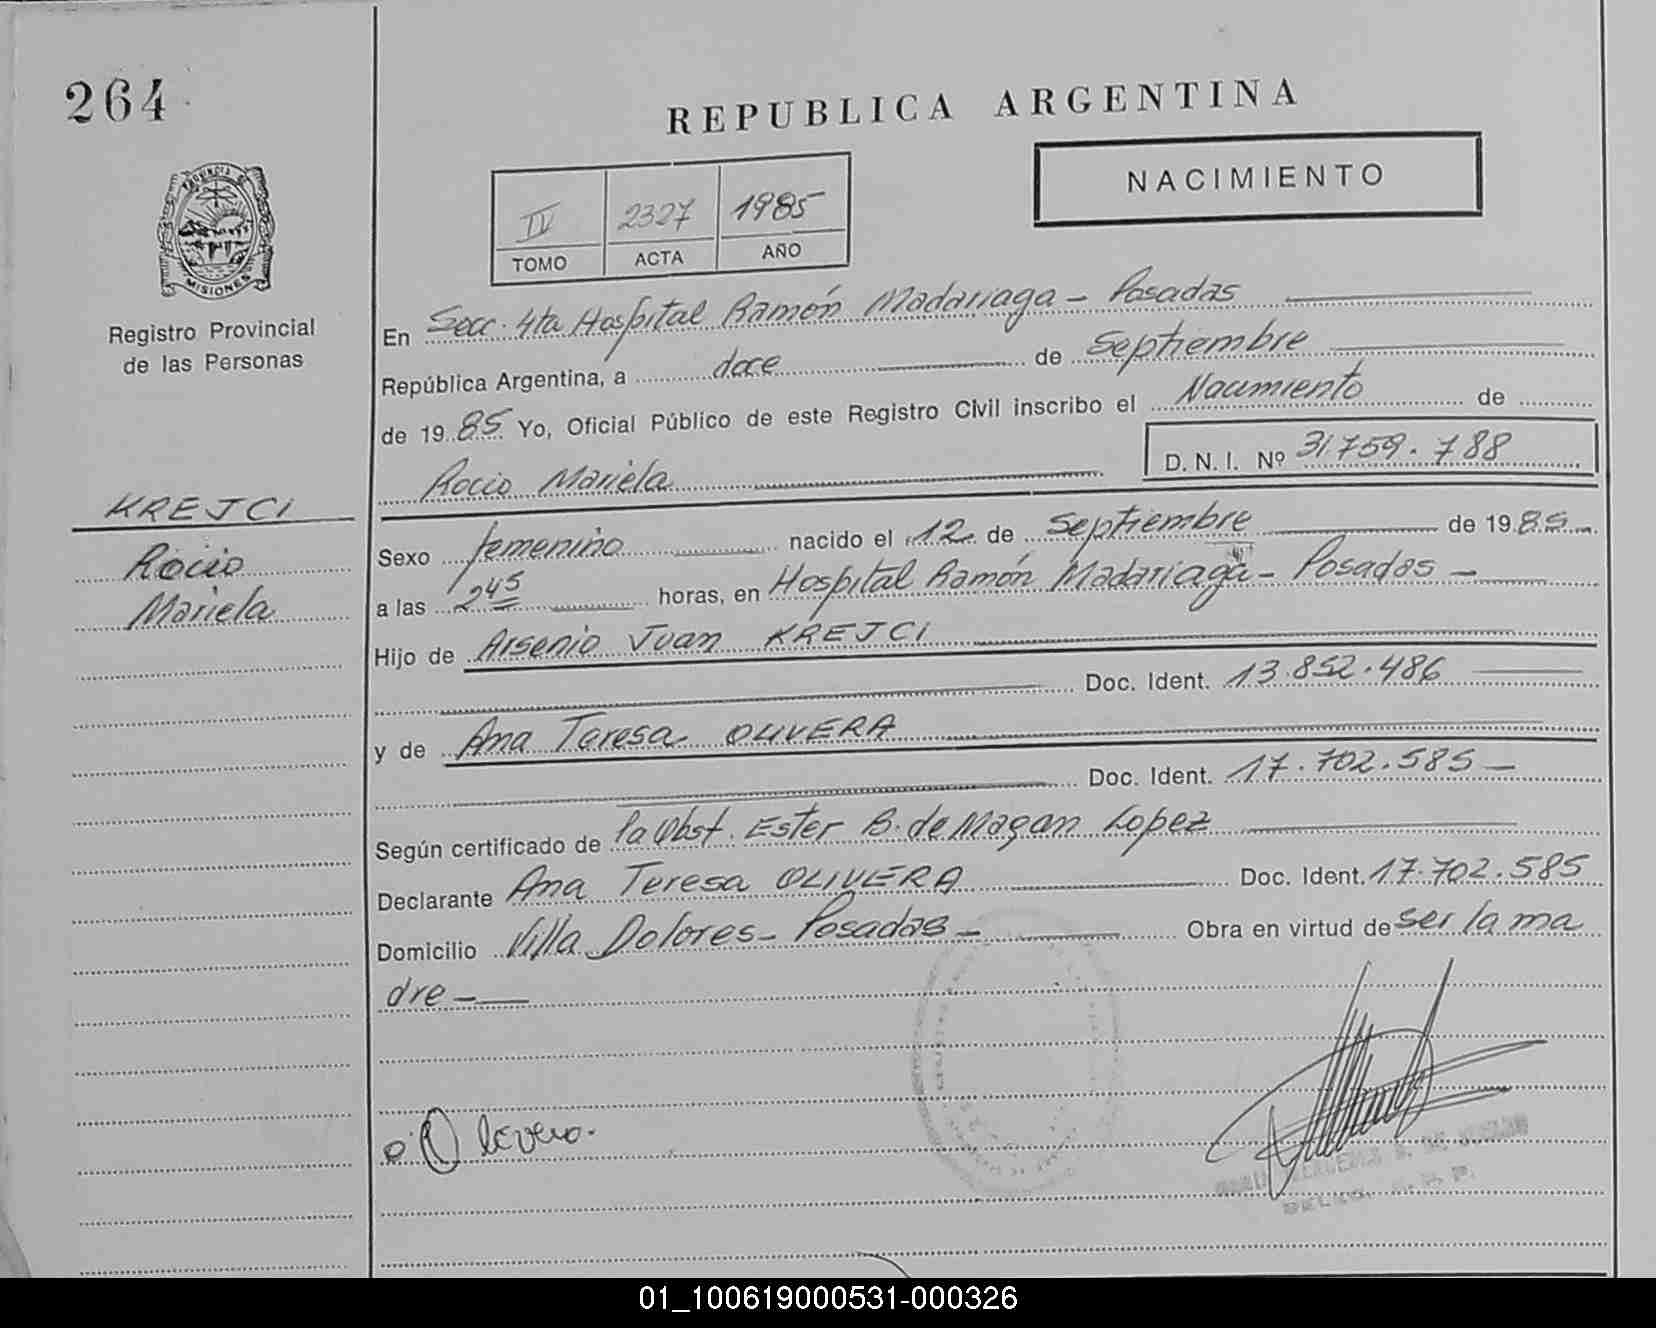 264
REPUBLICA ARGENTINA
NACIMIENTO
IV 2327 1985
TOMO ACTA AÑO
PROVINCIA DE
MISIONES
Registro Provincial
de las Personas
En Secc. 4ta Hospital Ramón Madariaga - Posadas
República Argentina, a doce de Septiembre
de 1985 Yo, Oficial Público de este Registro Civil inscribo el Nacimiento de
Rocio Mariela D. N. I. Nº 31759.788
KREJCI
Rocio
Mariela
Sexo femenino nacido el 12 de Septiembre de 1985
a las 2 45 horas, en Hospital Ramón Madariaga - Posadas -
Hijo de Arsenio Juan KREJCI
Doc. Ident. 13.852.486
y de Ana Teresa OLIVERA
Doc. Ident. 17.702.585 -
Según certificado de la Obst. Ester B. de Magan Lopez
Declarante Ana Teresa OLIVERA Doc. Ident. 17.702.585
Domicilio Villa Dolores - Posadas - Obra en virtud de ser la ma
dre -
01_100619000531-000326